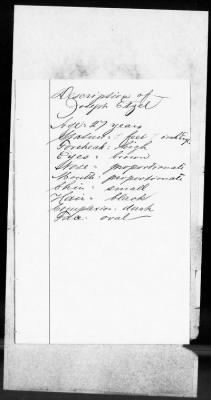 Description of
Joseph Etzel
Age: 27 years
Stature: feet inches
Forehead: High
Eyes: brown
Nose: proportionate
Mouth: proportionate
Chin: small
Hair: black
Complexion: dark
Face: oval